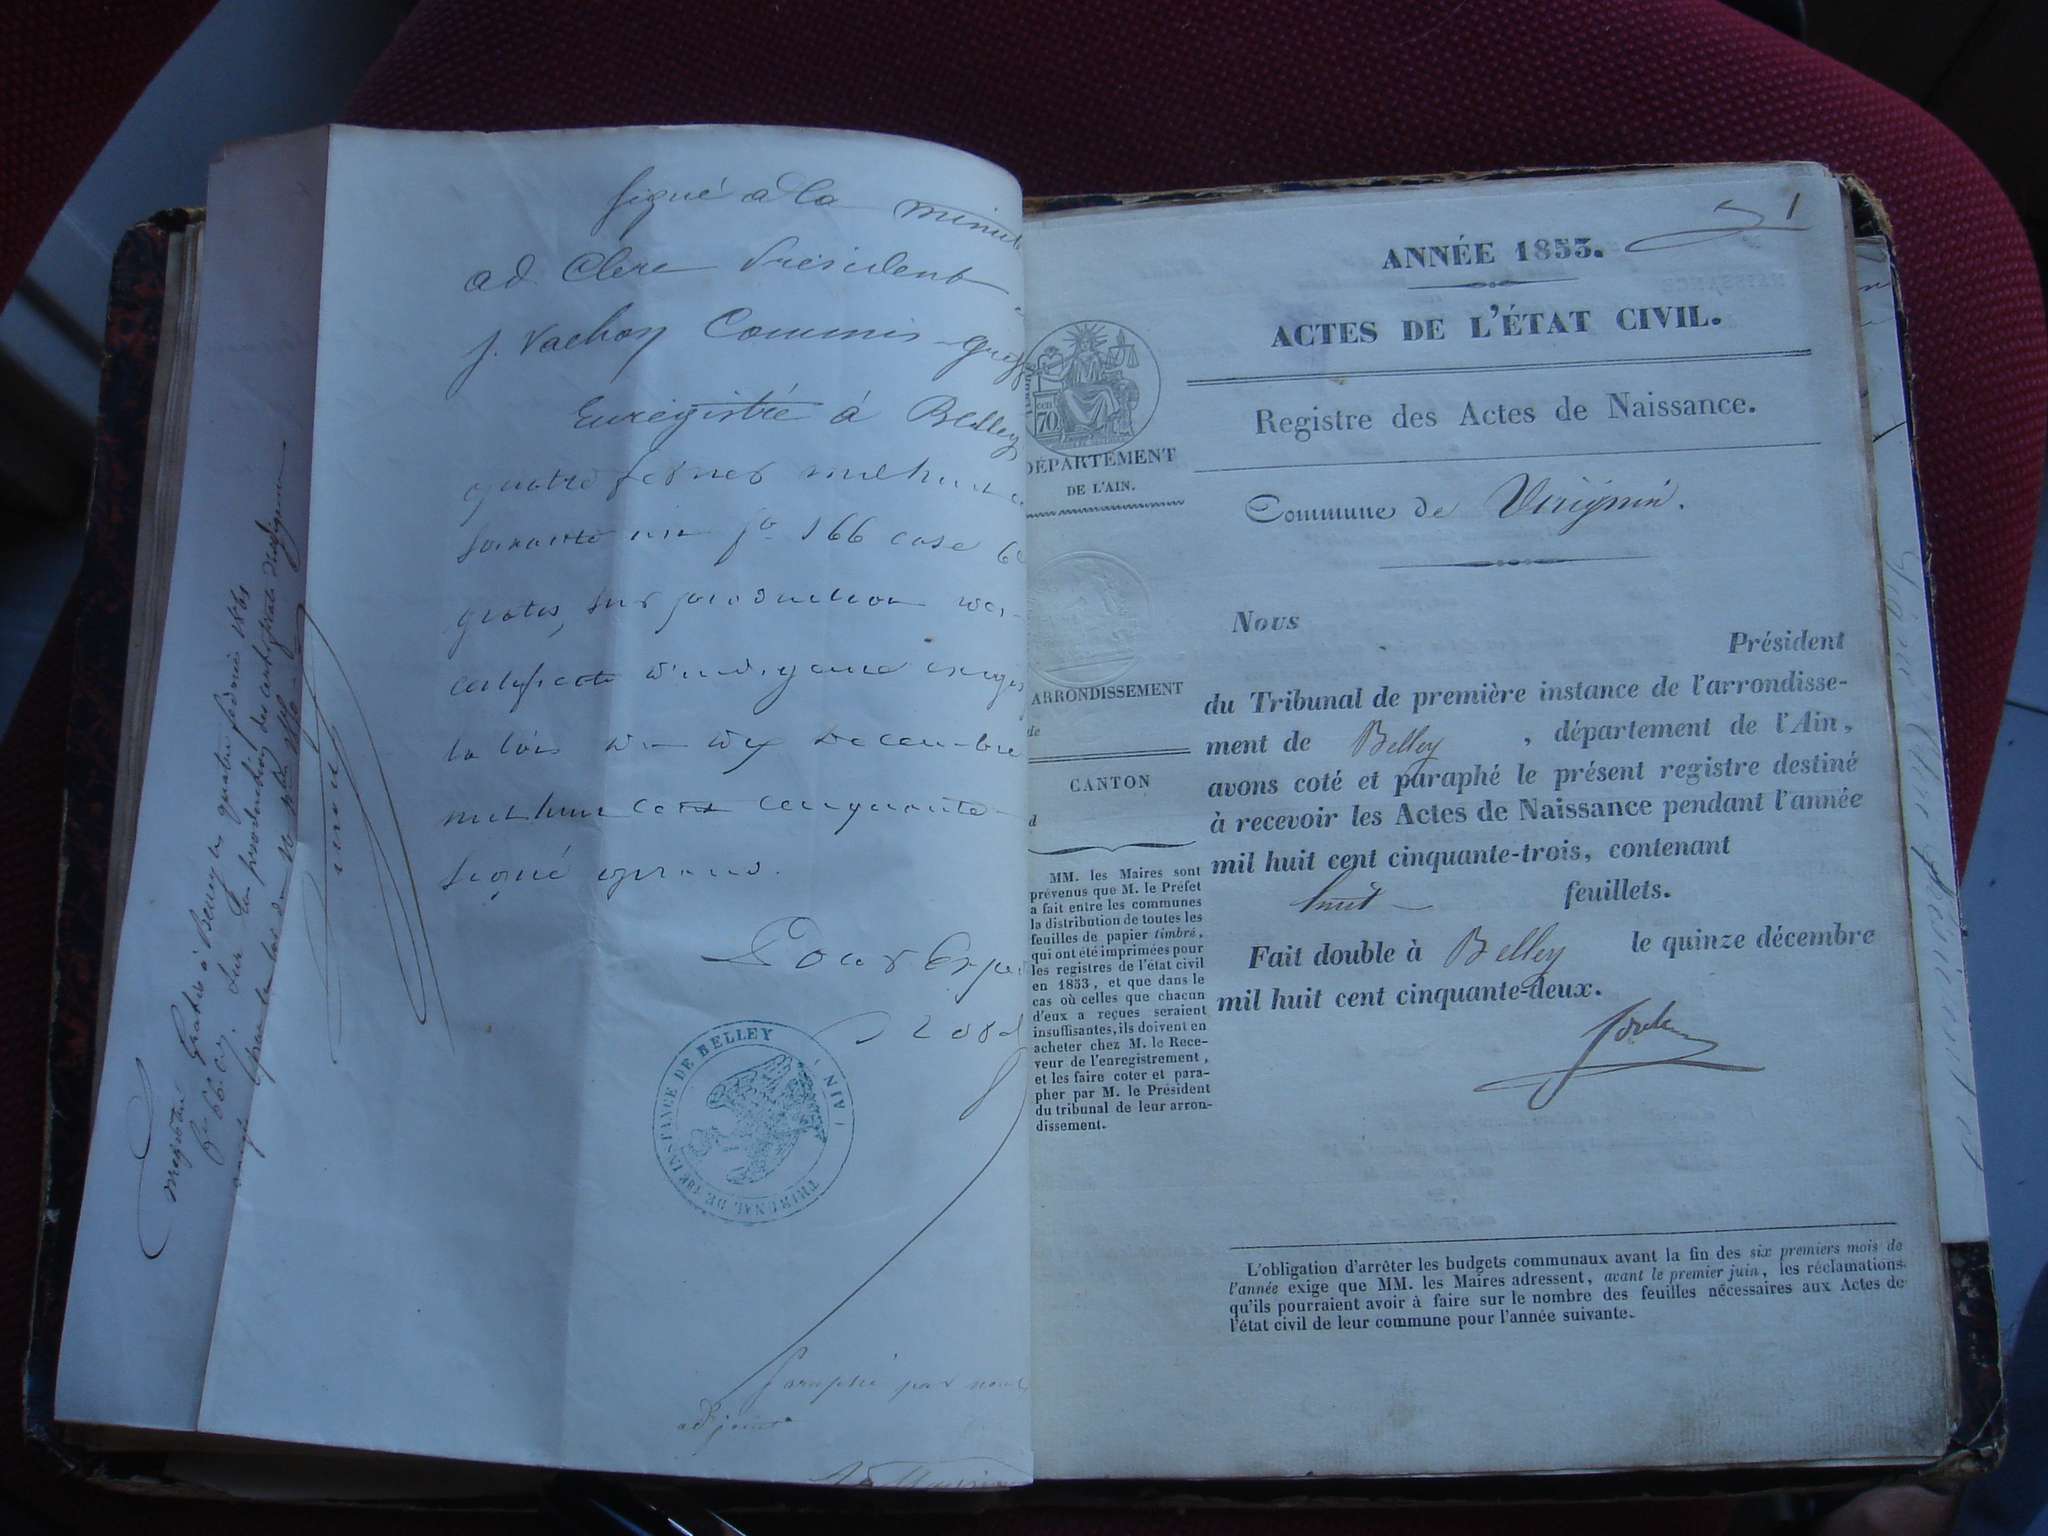 signé à la minute
ad. Clerc Président
J. Vachon Commis-greff
Enregistré à Belley
quatre février mil huit c
soixante un f° 166 case 6
gratis, sur production des
certificats d'indigence exigés
la loi du dix decembre
mil huit cent cinquante
signé
Pour Exp
Enregistré Gratis à Belley le quatre février 1861
f° 166 c. 6. Sur la production des certificats d'indigence
TRIBUNAL DE 1ère INSTANCE DE BELLEY (AIN)
Paraphé par nous
adjoint
1
ANNÉE 1853.
ACTES DE L'ÉTAT CIVIL.
Registre des Actes de Naissance.
Commune de Virignin.
70
DÉPARTEMENT
DE L'AIN.
ARRONDISSEMENT
de
CANTON
d
MM. les Maires sont
prévenus que M. le Préfet
a fait entre les communes
la distribution de toutes les
feuilles de papier timbré,
qui ont été imprimées pour
les registres de l'état civil
en 1853, et que dans le
cas où celles que chacun
d'eux a reçues seraient
insuffisantes, ils doivent en
acheter chez M. le Rece-
veur de l'enregistrement,
et les faire coter et para-
pher par M. le Président
du tribunal de leur arron-
dissement.
Nous
Président
du Tribunal de première instance de l'arrondisse-
ment de Belley, département de l'Ain,
avons coté et paraphé le présent registre destiné
à recevoir les Actes de Naissance pendant l'année
mil huit cent cinquante-trois, contenant
huit feuillets.
Fait double à Belley le quinze décembre
mil huit cent cinquante-deux.
L'obligation d'arrêter les budgets communaux avant la fin des six premiers mois de
l'année exige que MM. les Maires adressent, avant le premier juin, les réclamations
qu'ils pourraient avoir à faire sur le nombre des feuilles nécessaires aux Actes de
l'état civil de leur commune pour l'année suivante.